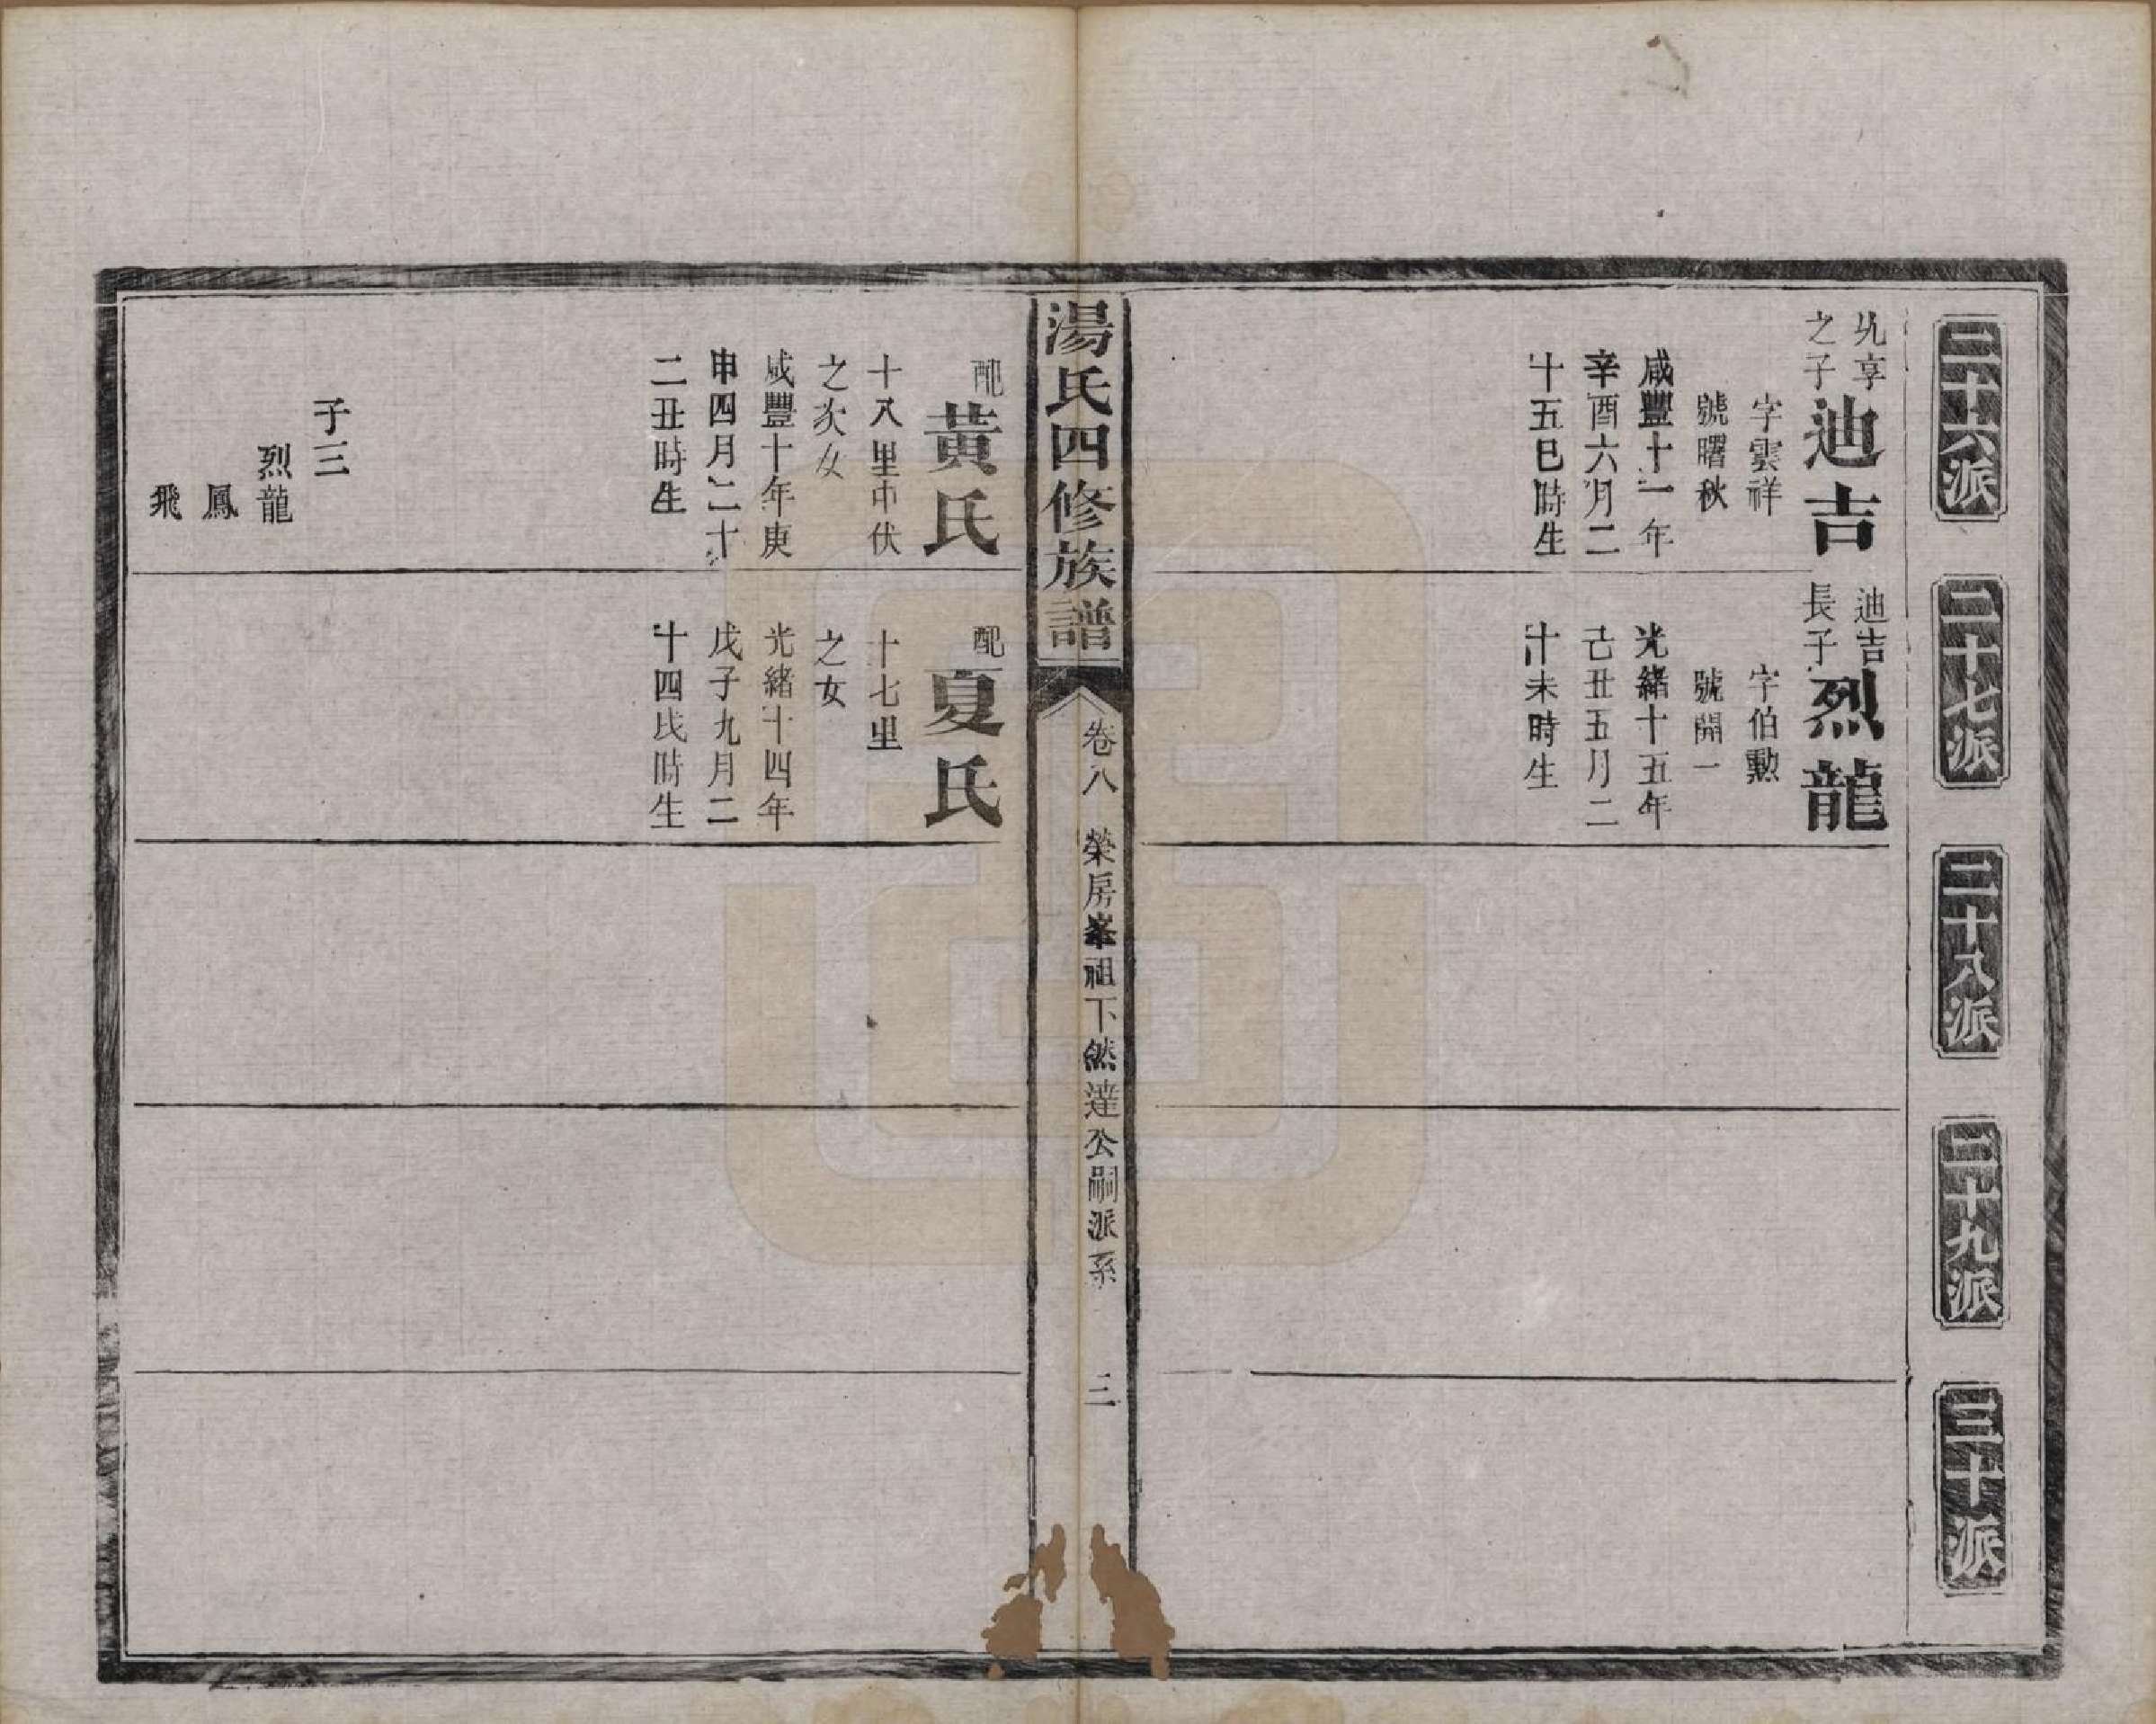 二十六派
二十七派
二十八派
二十九派
三十派
之子
迪吉
字雲祥
號曙秋
咸豐十一年
辛酉六月二
十五巳時生
迪吉
長子
烈龍
字伯勲
號開一
光緒十五年
己丑五月二
十未時生
湯氏四修族譜
卷八
榮房峯祖下然達公嗣派系
三
配
黃氏
十八里中伏
之次女
咸豐十年庚
申四月二十
二丑時生
子三
烈龍
鳳
飛
配
夏氏
十七里
之女
光緒十四年
戊子九月二
十四戌時生